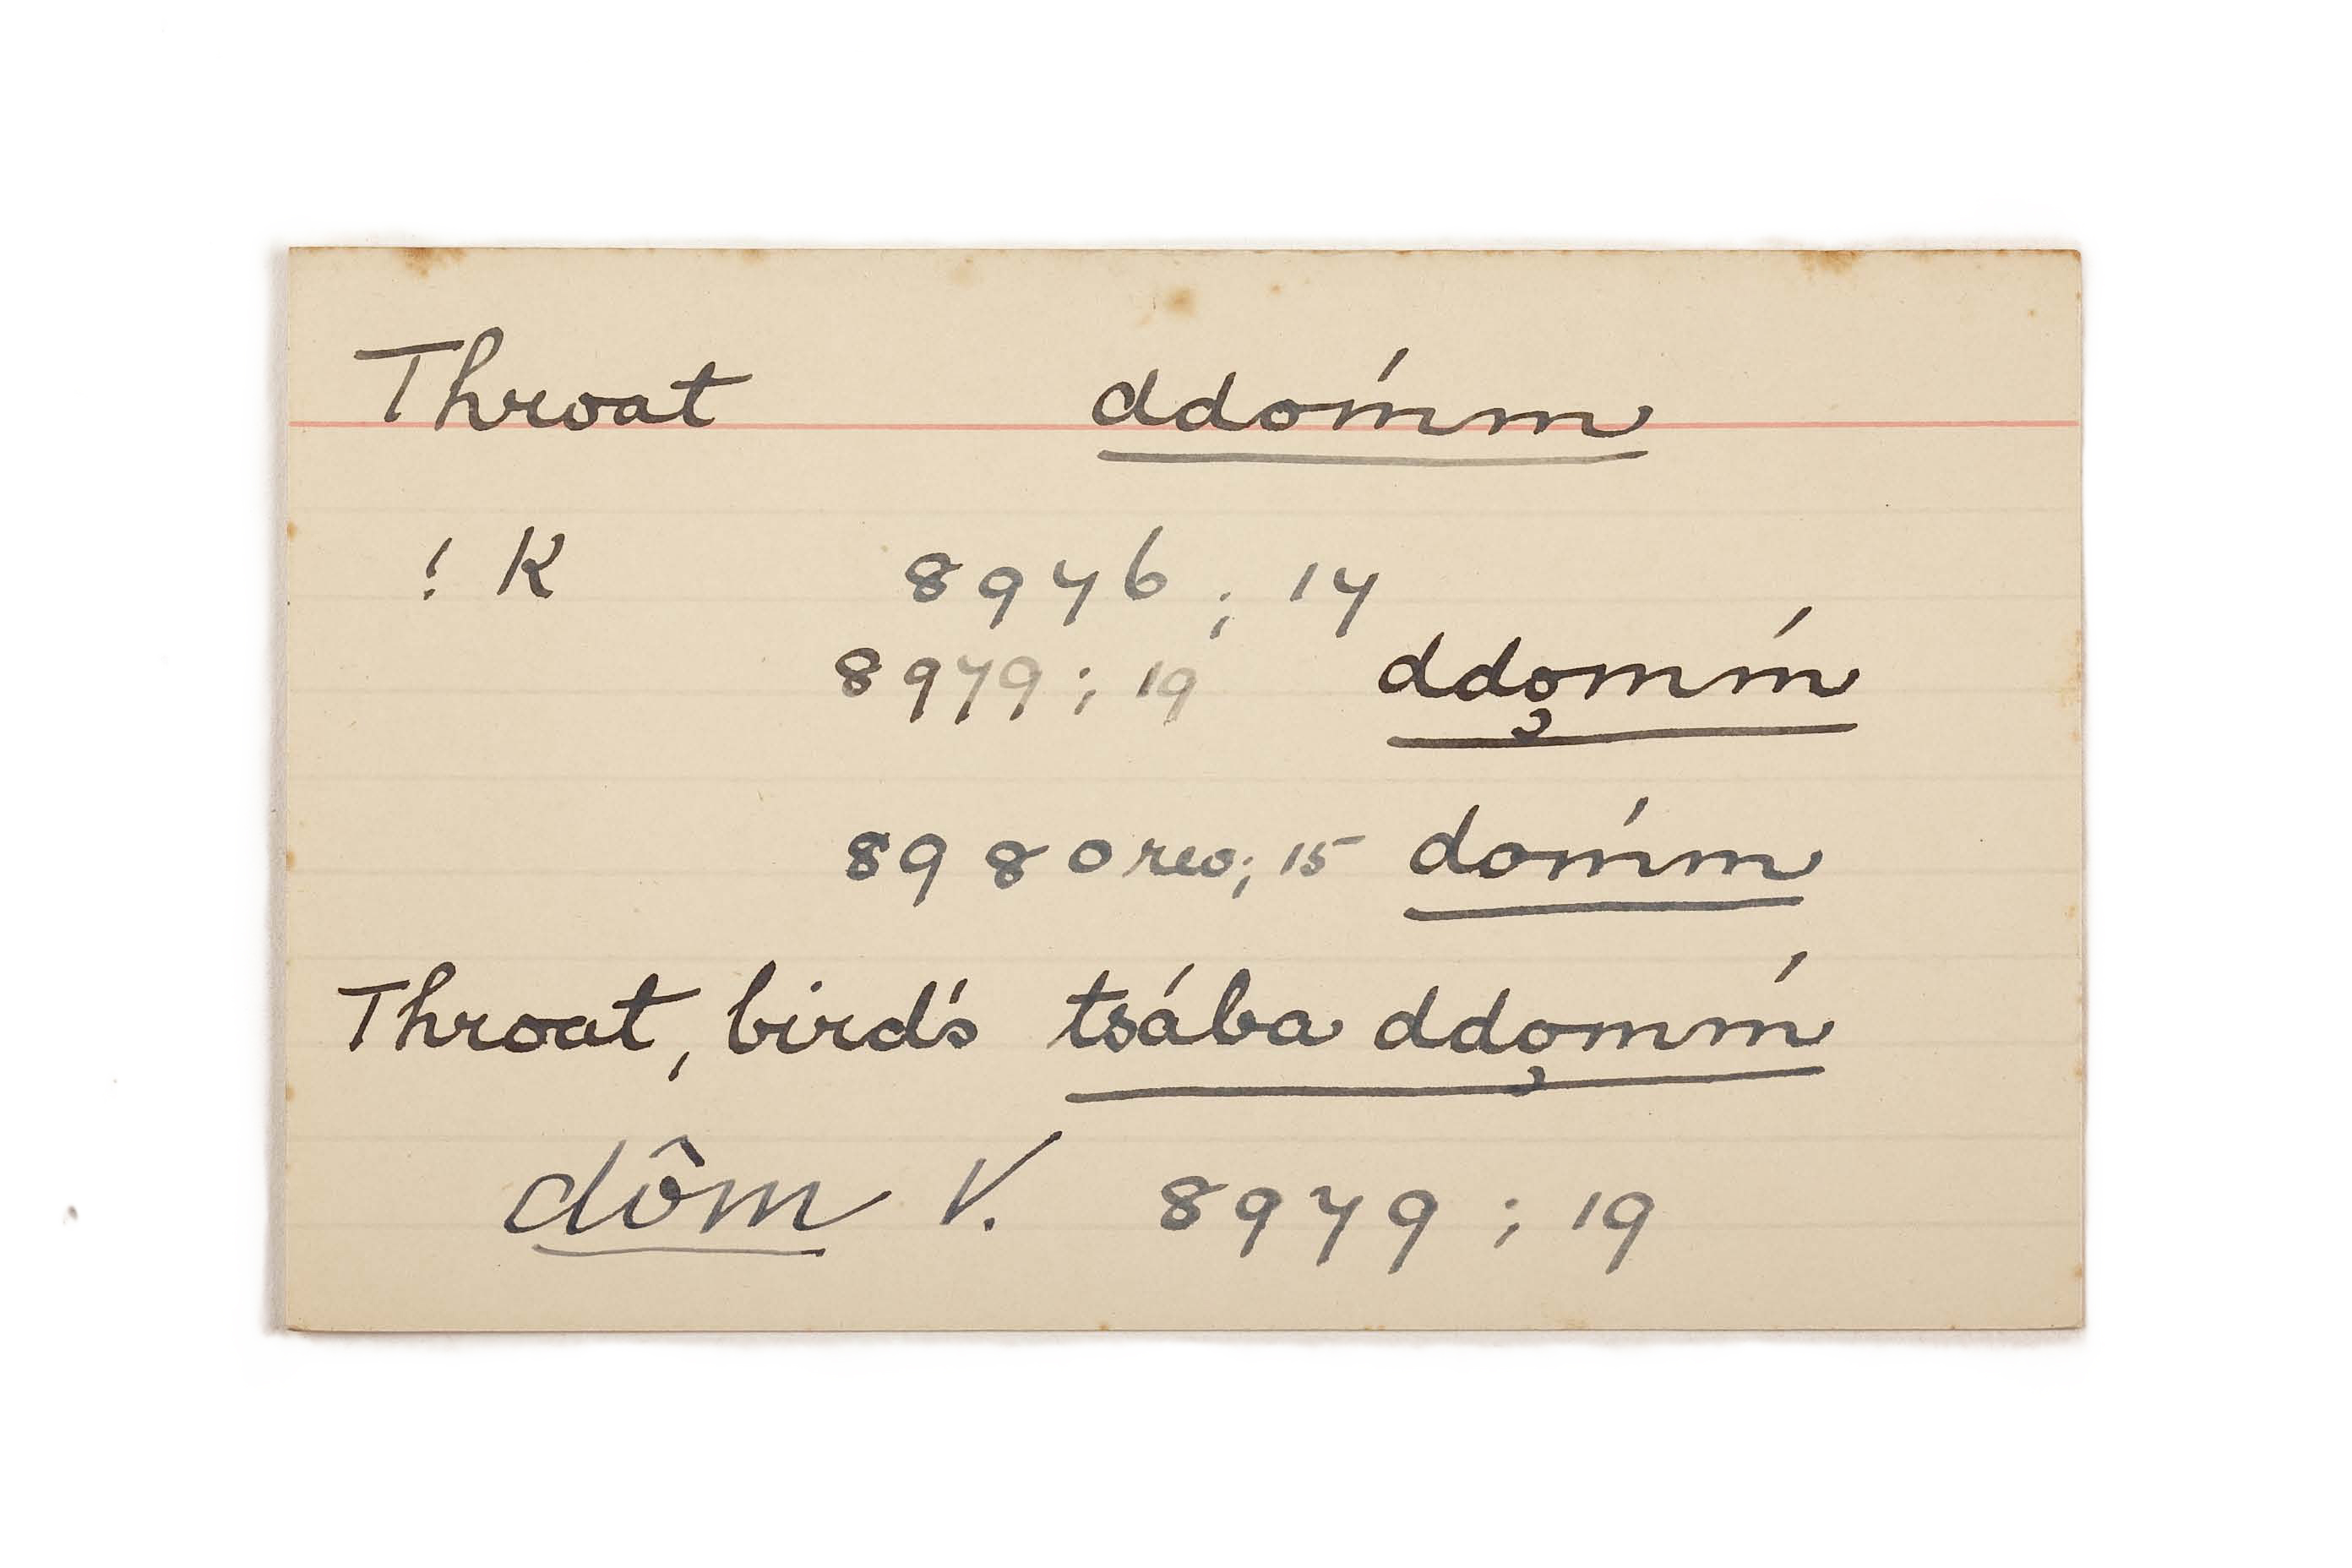 Throat ddomḿ
! K 8946 ; 14
8949 ; 19 ddo̧mḿ
8980 rev; 15 domḿ
Throat, bird's tsába ddo̧mḿ
dôm V. 8949 ; 19